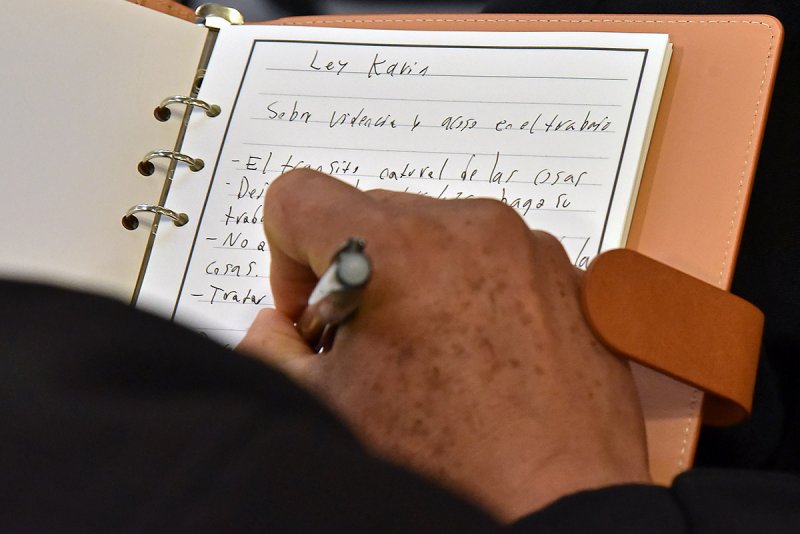 Ley Karin
Sobre violencia y acoso en el trabajo
- El transito natural de las cosas
haga su
- No a
la
cosas.
- Tratar